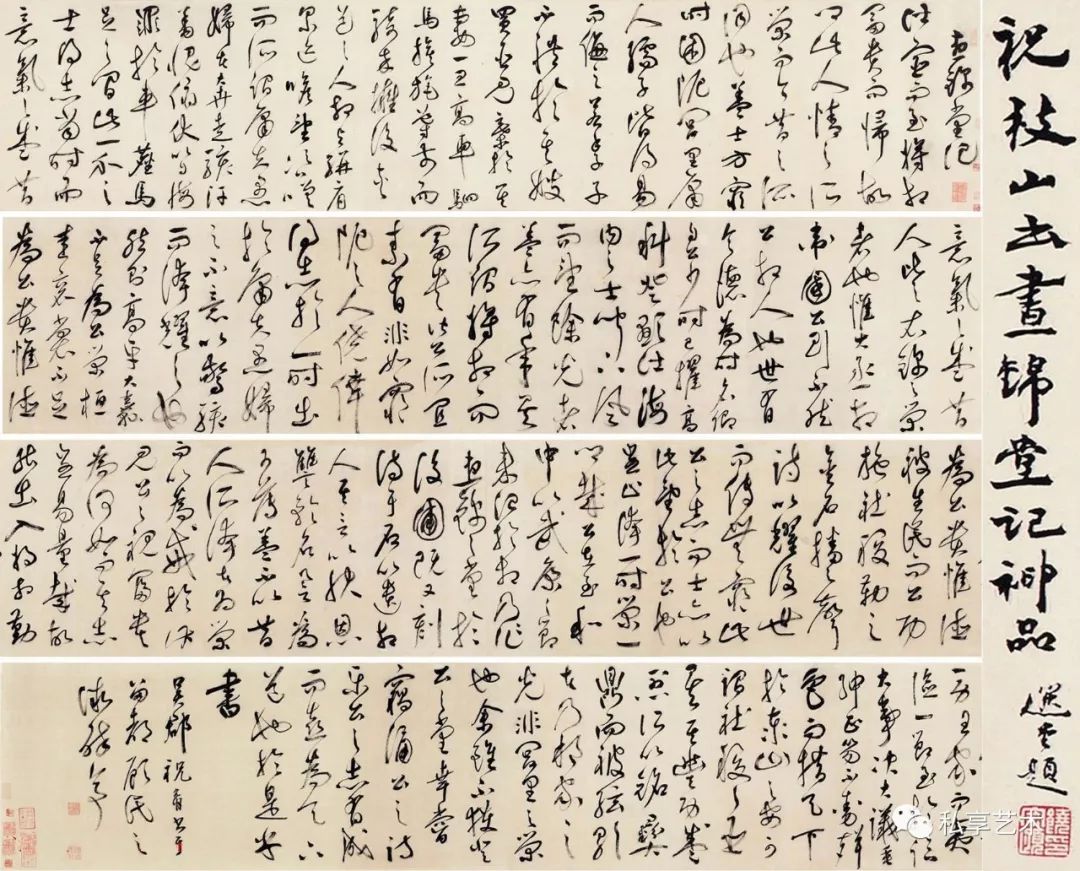 祝枝山书晝錦堂記神品
選堂題
晝錦堂記
仕宦而至將相
富貴而歸故
鄉此人情之所
榮而今昔之所
同也蓋士方窮
時困阨閭里庸
人孺子皆得易
而侮之若季子
不禮於其嫂
買臣見棄於其
妻一旦高車駟
馬旗旄導前而
騎卒擁後夾
道之人相與駢肩
累迹瞻望咨嗟
而所謂庸夫愚
婦者奔走駭汗
羞愧俯伏以自悔
罪於車塵馬
足之間此一介之
士得志當時而
意氣之盛昔
意氣之盛昔
人比之衣錦之榮
者也惟大丞相
衛國公則不然
公相人也世有
令德為時名卿
自公少時已擢高
科登顯仕海
內之士聞下風
而望餘光者
蓋亦有年矣
所謂將相而
富貴皆公所宜
素有非如窮
阨之人僥倖
得志於一時出
於庸夫愚婦
之不意以驚駭
而誇耀之也
然則高牙大纛
不足為公榮桓
圭袞裳不足
為公貴惟德
為公貴惟德
被生民而公功
施社稷勒之
金石播之聲
詩以耀後世
而傳世無窮此
公之志而士亦以
此望於公也
豈止誇一時榮一
鄉哉公在至和
中以武康之節
來治於相乃作
晝錦之堂於
後圃既又刻
詩于石以遺相
人其言以快恩
讎矜名譽為
可薄蓋不以昔
人所誇者為榮
而以為戒於此
見公之視富貴
為何如而其志
豈易量哉故
能出入將相勤
勞王家而夷
險一節至於臨
大事決大議垂
紳正笏不動聲
色而措天下
於泰山之安可
謂社稷之臣
矣其豐功盛
烈所以銘彝
鼎而被絃歌
者乃邦家之
光非閭里之榮
也余雖不獲登
公之堂幸嘗
竊誦公之詩
樂公之志有成
而喜為天下
道也於是乎
書
吳郡祝
留都顧氏之
私享艺术